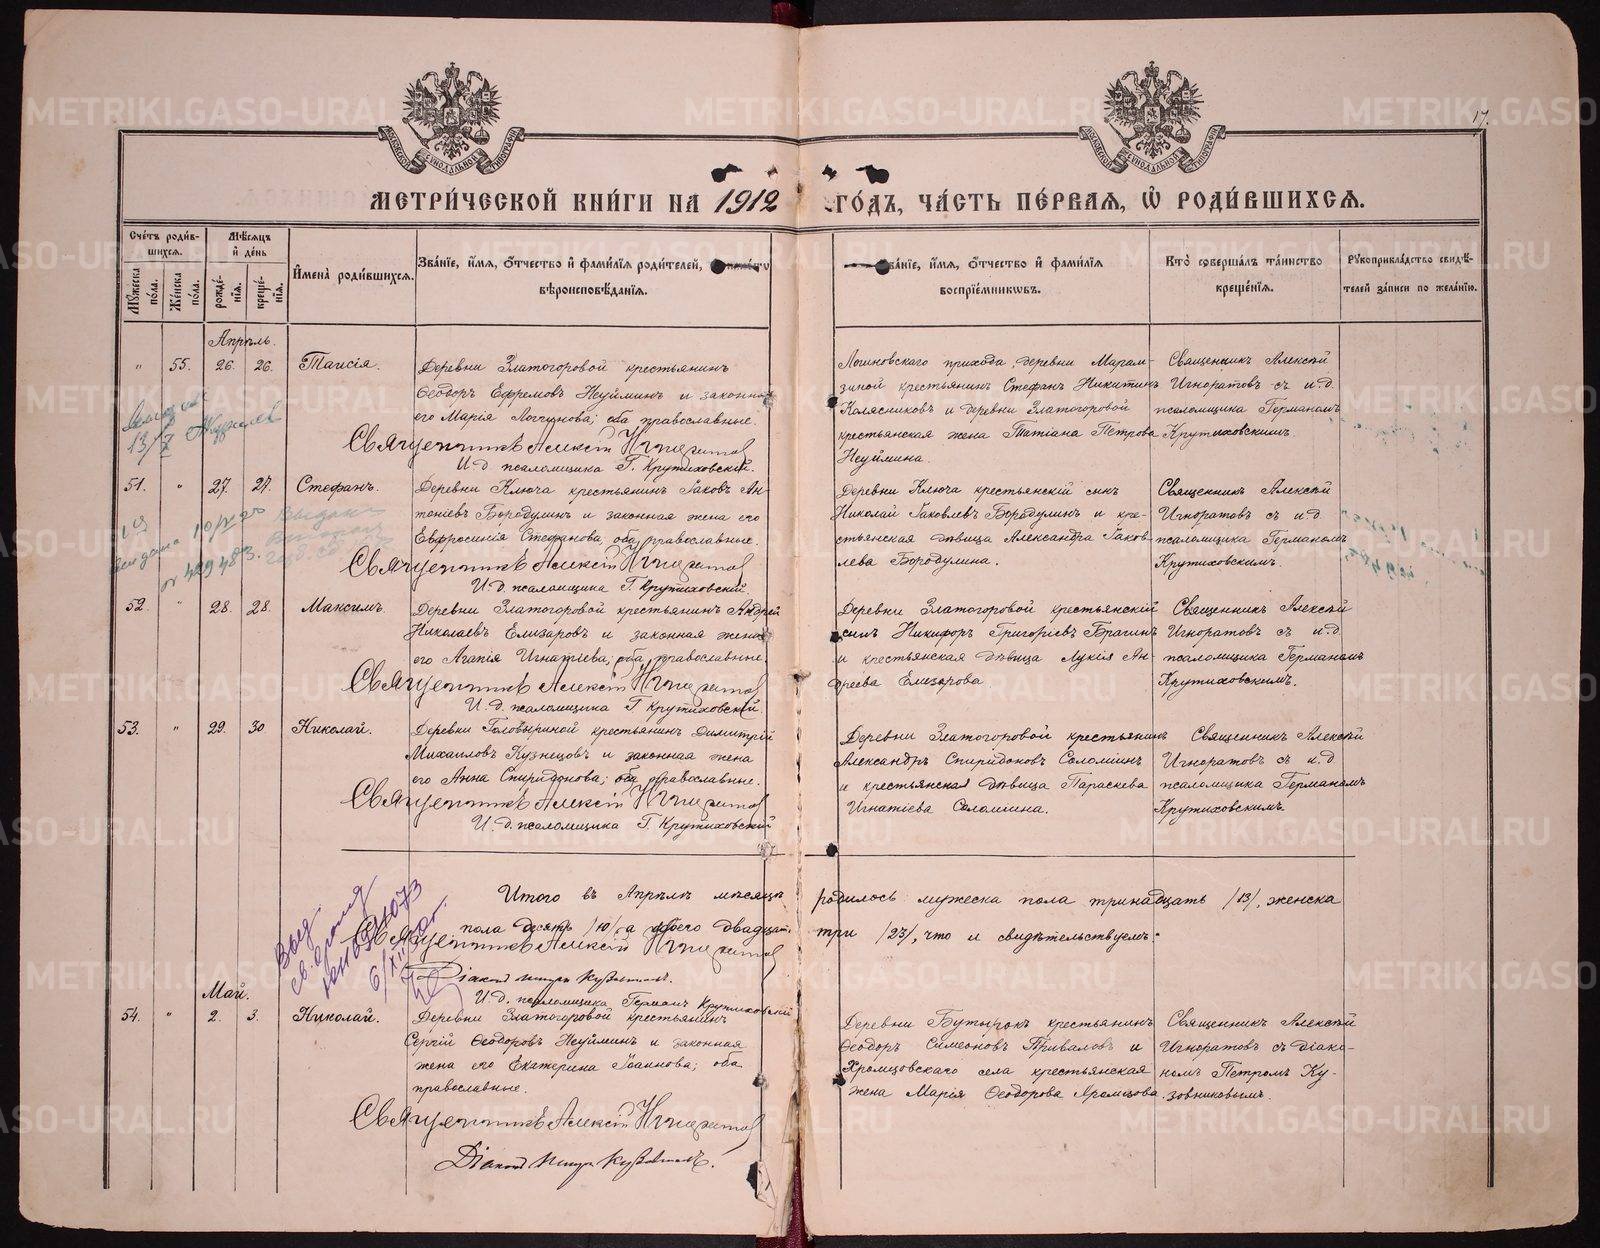 17.
МЕТРИ́ЧЕСКОЙ КНИ́ГИ НА 1912 ГО́ДЪ, ЧА́СТЬ ПЕ́РВАЯ, Ѡ҆ РОДИ́ВШИХСЯ.
Сче́тъ роди́вшихся.
Мꙋ́жеска по́ла.
Же́нска по́ла.
Мѣ́сяцъ и҆ де́нь
рожде́нїя.
креще́нїя.
И҆мена̀ роди́вшихся.
Зва́нїе, и҆́мя, ѻ҆́тчество и҆ фами́лїя роди́телей,
вѣроисповѣ́данїя.
ва́нїе, и҆́мя, ѻ҆́тчество и҆ фами́лїя
воспрїе́мникѡвъ.
Кто̀ соверша́лъ та́инство
креще́нїя.
Рꙋкоприкла́дство свидѣ́-
телей за́писи по жела́нїю.
Апрѣль.
" 55. 26. 26. Таисія.
Деревни Златогоровой крестьянинъ
Ѳеодоръ Ефремовъ Неуйминъ и законная
его Марія Логинова; оба православные.
Священникъ Алексій Игноратов
И.д. псаломщика Г. Крутиховскій.
Логиновскаго прихода, деревни Марам-
зиной крестьянинъ Стефанъ Никитинъ
Колясниковъ и деревни Златогоровой
крестьянская жена Татіана Петрова
Неуймина.
Священникъ Алексѣй
Игноратовъ съ и.д.
псаломщика Германомъ
Крутиховскимъ.
51. " 27. 27. Стефанъ.
Деревни Ключа крестьянинъ Іаковъ Ан-
тоніевъ Бородулинъ и законная жена его
Евфросинія Стефанова, оба православные.
Священникъ Алексій Игноратов
И.д. псаломщика Г. Крутиховскій.
Деревни Ключа крестьянскій сынъ
Николай Іаковлевъ Бородулинъ и кре-
стьянская дѣвица Александра Іаков-
лева Бородулина.
Священникъ Алексѣй
Игноратовъ съ и.д.
псаломщика Германомъ
Крутиховскимъ.
52. " 28. 28. Максимъ.
Деревни Златогоровой крестьянинъ Андрей
Николаевъ Елизаровъ и законная жена
его Агапія Игнатіева; оба православные.
Священникъ Алексій Игноратов
И.д. псаломщика Г. Крутиховскій.
Деревни Златогоровой крестьянскій
сынъ Никифоръ Григоріевъ Брагинъ
и крестьянская дѣвица Лукія Ан-
дреева Елизарова
Священникъ Алексѣй
Игноратовъ съ и.д.
псаломщика Германомъ
Крутиховскимъ.
53. " 29. 30 Николай.
Деревни Головыриной крестьянинъ Димитрій
Михаиловъ Кузнецовъ и законная жена
его Анна Спиридонова; оба православные.
Священникъ Алексій Игноратов
И.д. псаломщика Г. Крутиховскій
Деревни Златогоровой крестьянинъ
Александръ Спиридоновъ Соломинъ
и крестьянская дѣвица Параскева
Игнатіева Соломина.
Священникъ Алексѣй
Игноратовъ съ и.д.
псаломщика Германомъ
Крутиховскимъ.
Итого въ Апрѣлѣ мѣсяцѣ родилось мужеска пола тринадцать /13/, женска
пола десять /10/, а обоего двадцать три /23/, что и свидѣтельствуемъ:
Священникъ Алексій Игноратов
Діаконъ Петръ Кузовников.
И.д. псаломщика Германъ Крутиховскій
Май.
54. " 2. 3. Николай.
Деревни Златогоровой крестьянинъ
Сергій Ѳеодоровъ Неуйминъ и законная
жена его Екатерина Іоаннова; оба
православные.
Священникъ Алексій Игноратов
Діаконъ Петръ Кузовников.
Деревни Бутырокъ крестьянинъ
Ѳеодоръ Симеоновъ Приваловъ и
Хромцовскаго села крестьянская
жена Марія Ѳеодорова Хромцова.
Священникъ Алексѣй
Игноратовъ съ діако-
номъ Петромъ Ку-
зовниковымъ.
METRIKI.GASO-URAL.RU